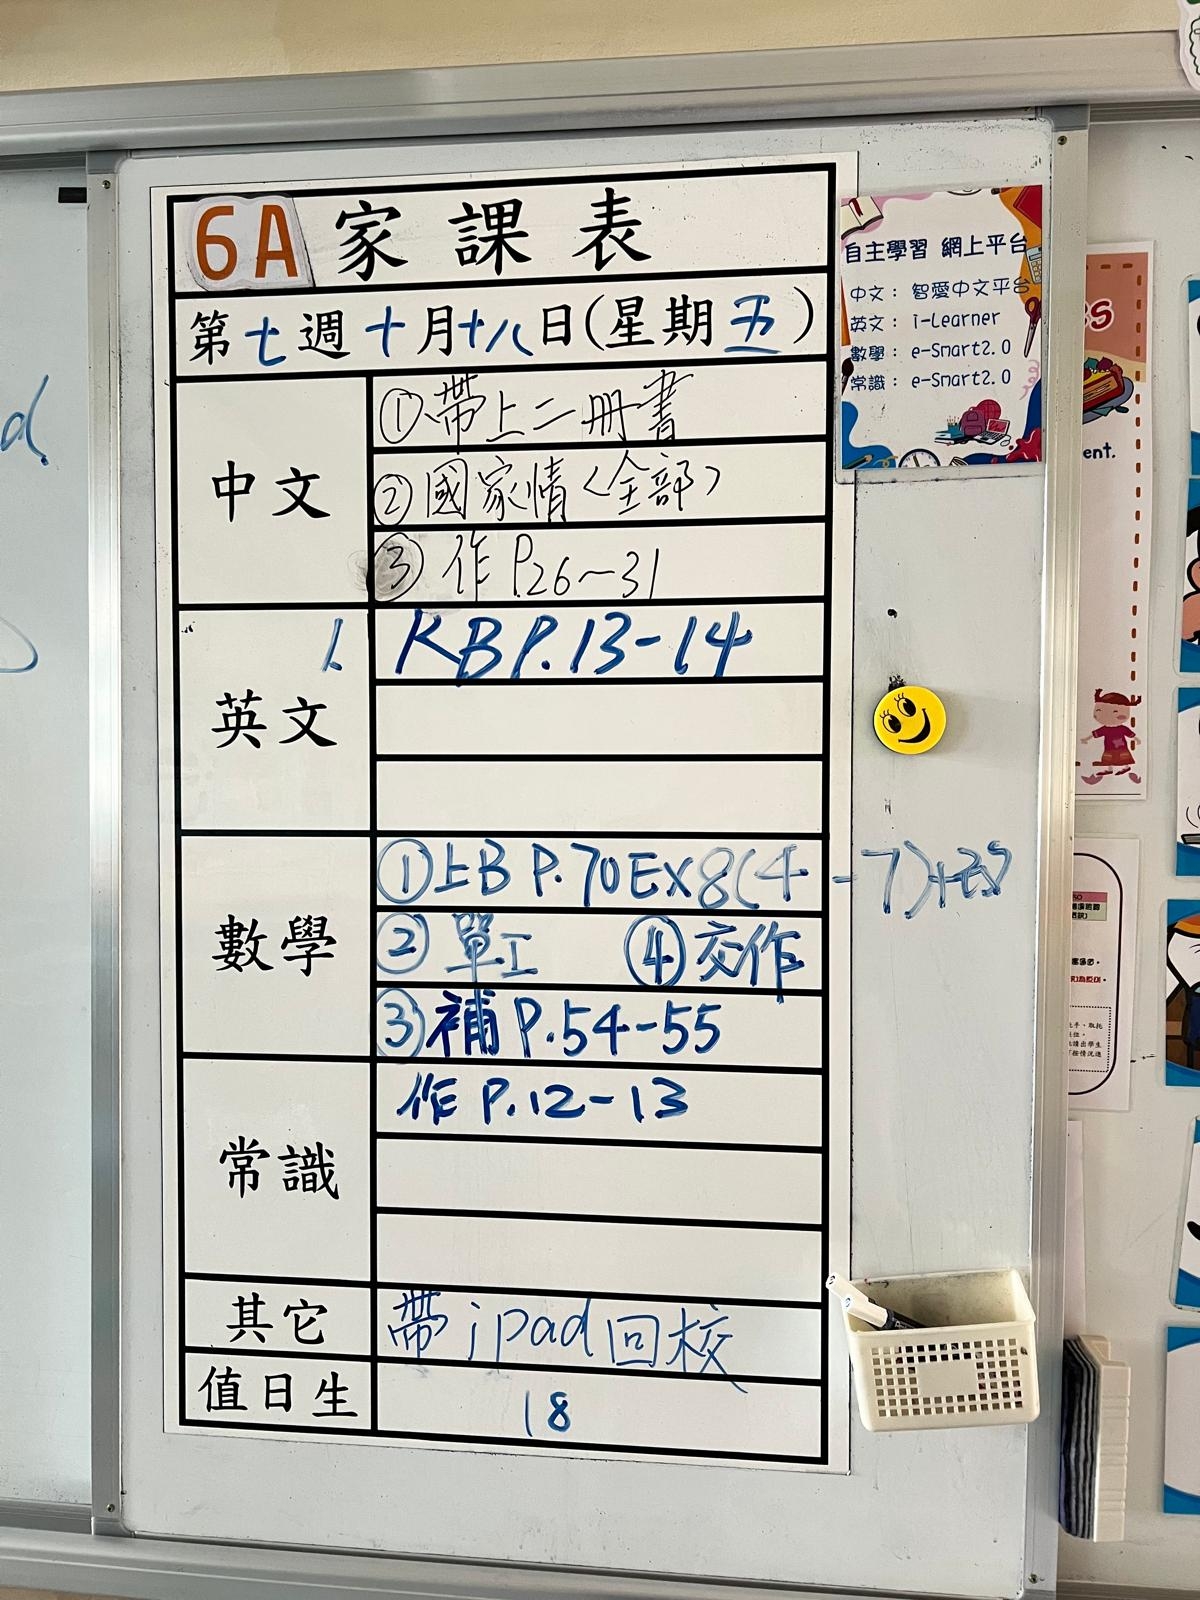 6A 家課表
第七週十月十八日(星期五)
中文
①帶上二冊書
②國家情〈全部〉
③ 作 P.26~31
英文
1. KB P.13-14
數學
①上B P.70 Ex 8(4-7)
② 單工 ④交作
③補 P.54-55
常識
作 P.12-13
其它
帶 ipad 回校
值日生
18
自主學習 網上平台
中文： 智愛中文平台
英文： i-Learner
數學： e-Smart2.0
常識： e-Smart2.0
ent.